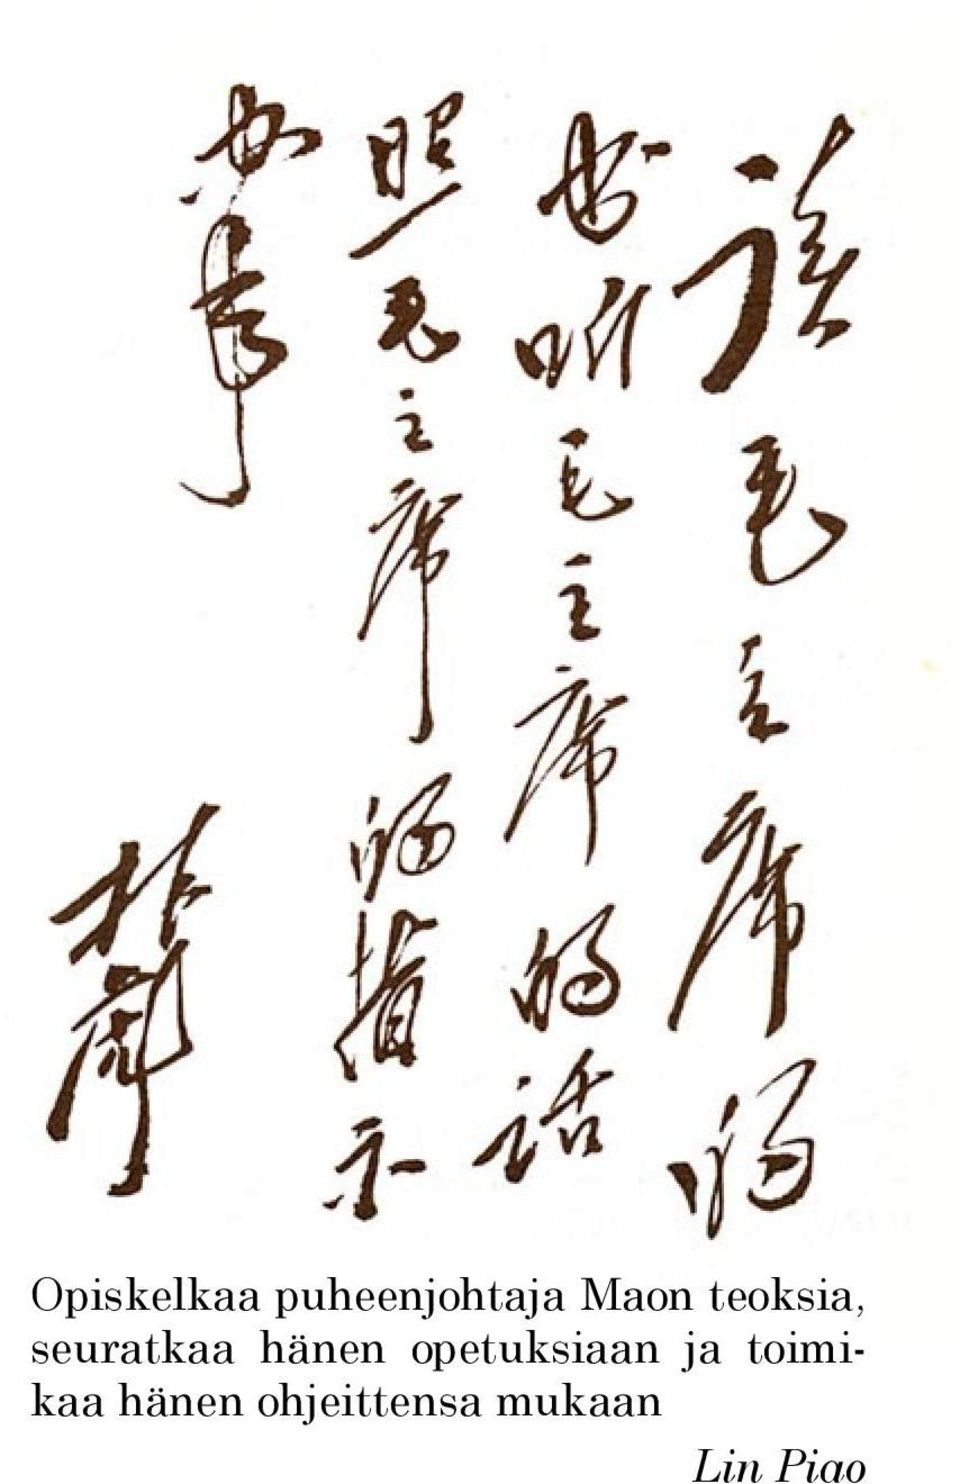 读毛主席的
书听毛主席的话
照毛主席的指示
办事
林彪
Opiskelkaa puheenjohtaja Maon teoksia,
seuratkaa hänen opetuksiaan ja toimi-
kaa hänen ohjeittensa mukaan
Lin Piao